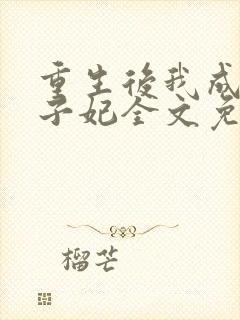 重生後我成
子妃全文免
榴芒